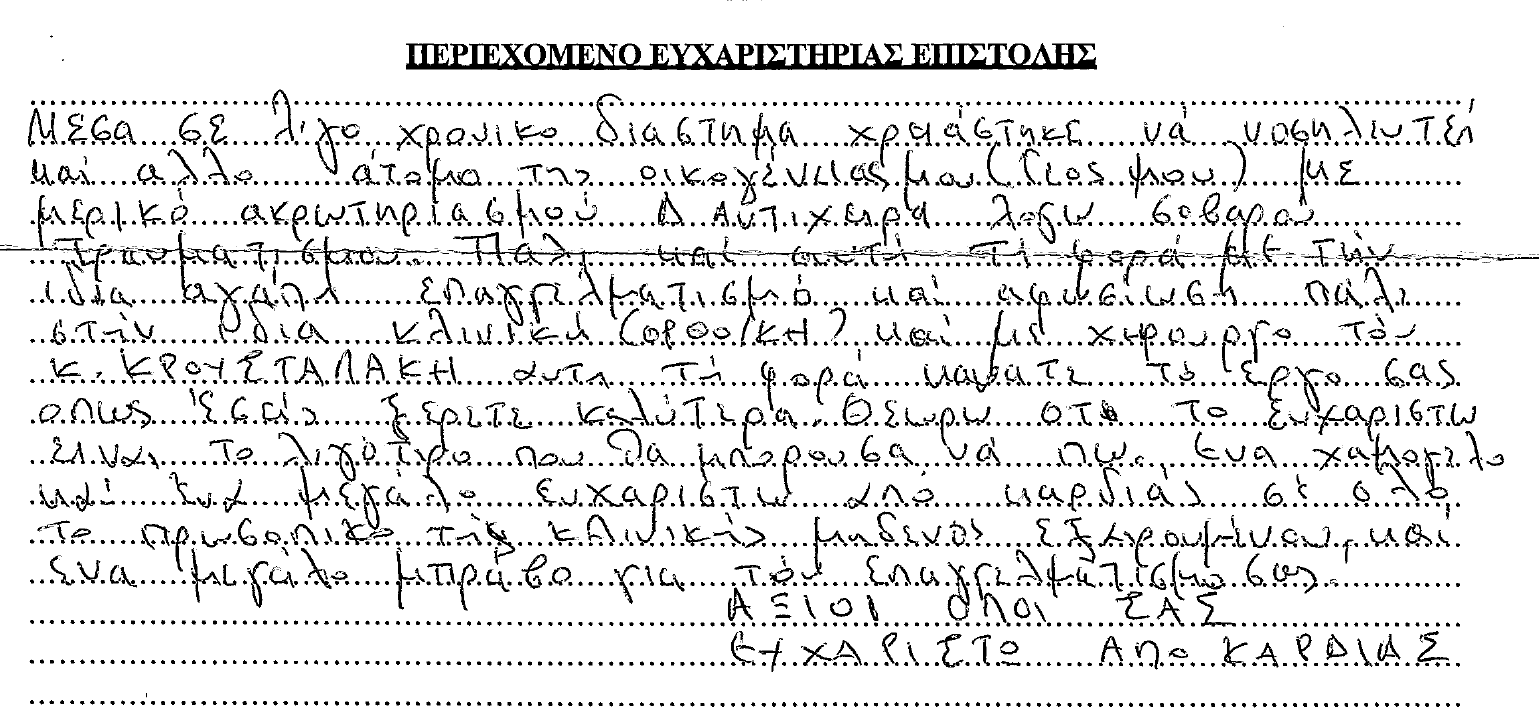 ΠΕΡΙΕΧΟΜΕΝΟ ΕΥΧΑΡΙΣΤΗΡΙΑΣ ΕΠΙΣΤΟΛΗΣ
Μεσα σε λιγο χρονικο διαστημα χρειάστηκε νά νοσηλευτεί
και αλλο άτομο της οικογένειας μου (Γιος μου) με
μερικό ακρωτηριασμού Δ Αντιχειρα λογω σοβαρού
Τραυματισμου. Παλι και αυτή τή φορά με τήν
ιδια αγάπη επαγγελματισμό καί αφωσίωση πάλι
στήν ιδια κλινική (ΟΡΘΟ/ΚΗ) καί με χειρουργο τόν
κ. ΚΡΟΥΣΤΑΛΑΚΗ αυτη τή φορά κανατε τό έργο σας
οπως Εσείς ξερετε καλύτερα. Θεωρω οτι το ευχαριστω
ειναι το λιγότερο που θα μπορουσα νά πω. Ενα χαμογελο
καί ενα μεγάλο ευχαριστω από καρδιάς σέ ολό
το πρωσοπικο τής κλινικής μηδενος εξαιρουμένου, και
ενα μεγάλο μπράβο για τόν επαγγελματισμο σας.
ΑΞΙΟΙ ΟΛΟΙ ΣΑΣ
ΕΥΧΑΡΙΣΤΩ ΑΠΟ ΚΑΡΔΙΑΣ